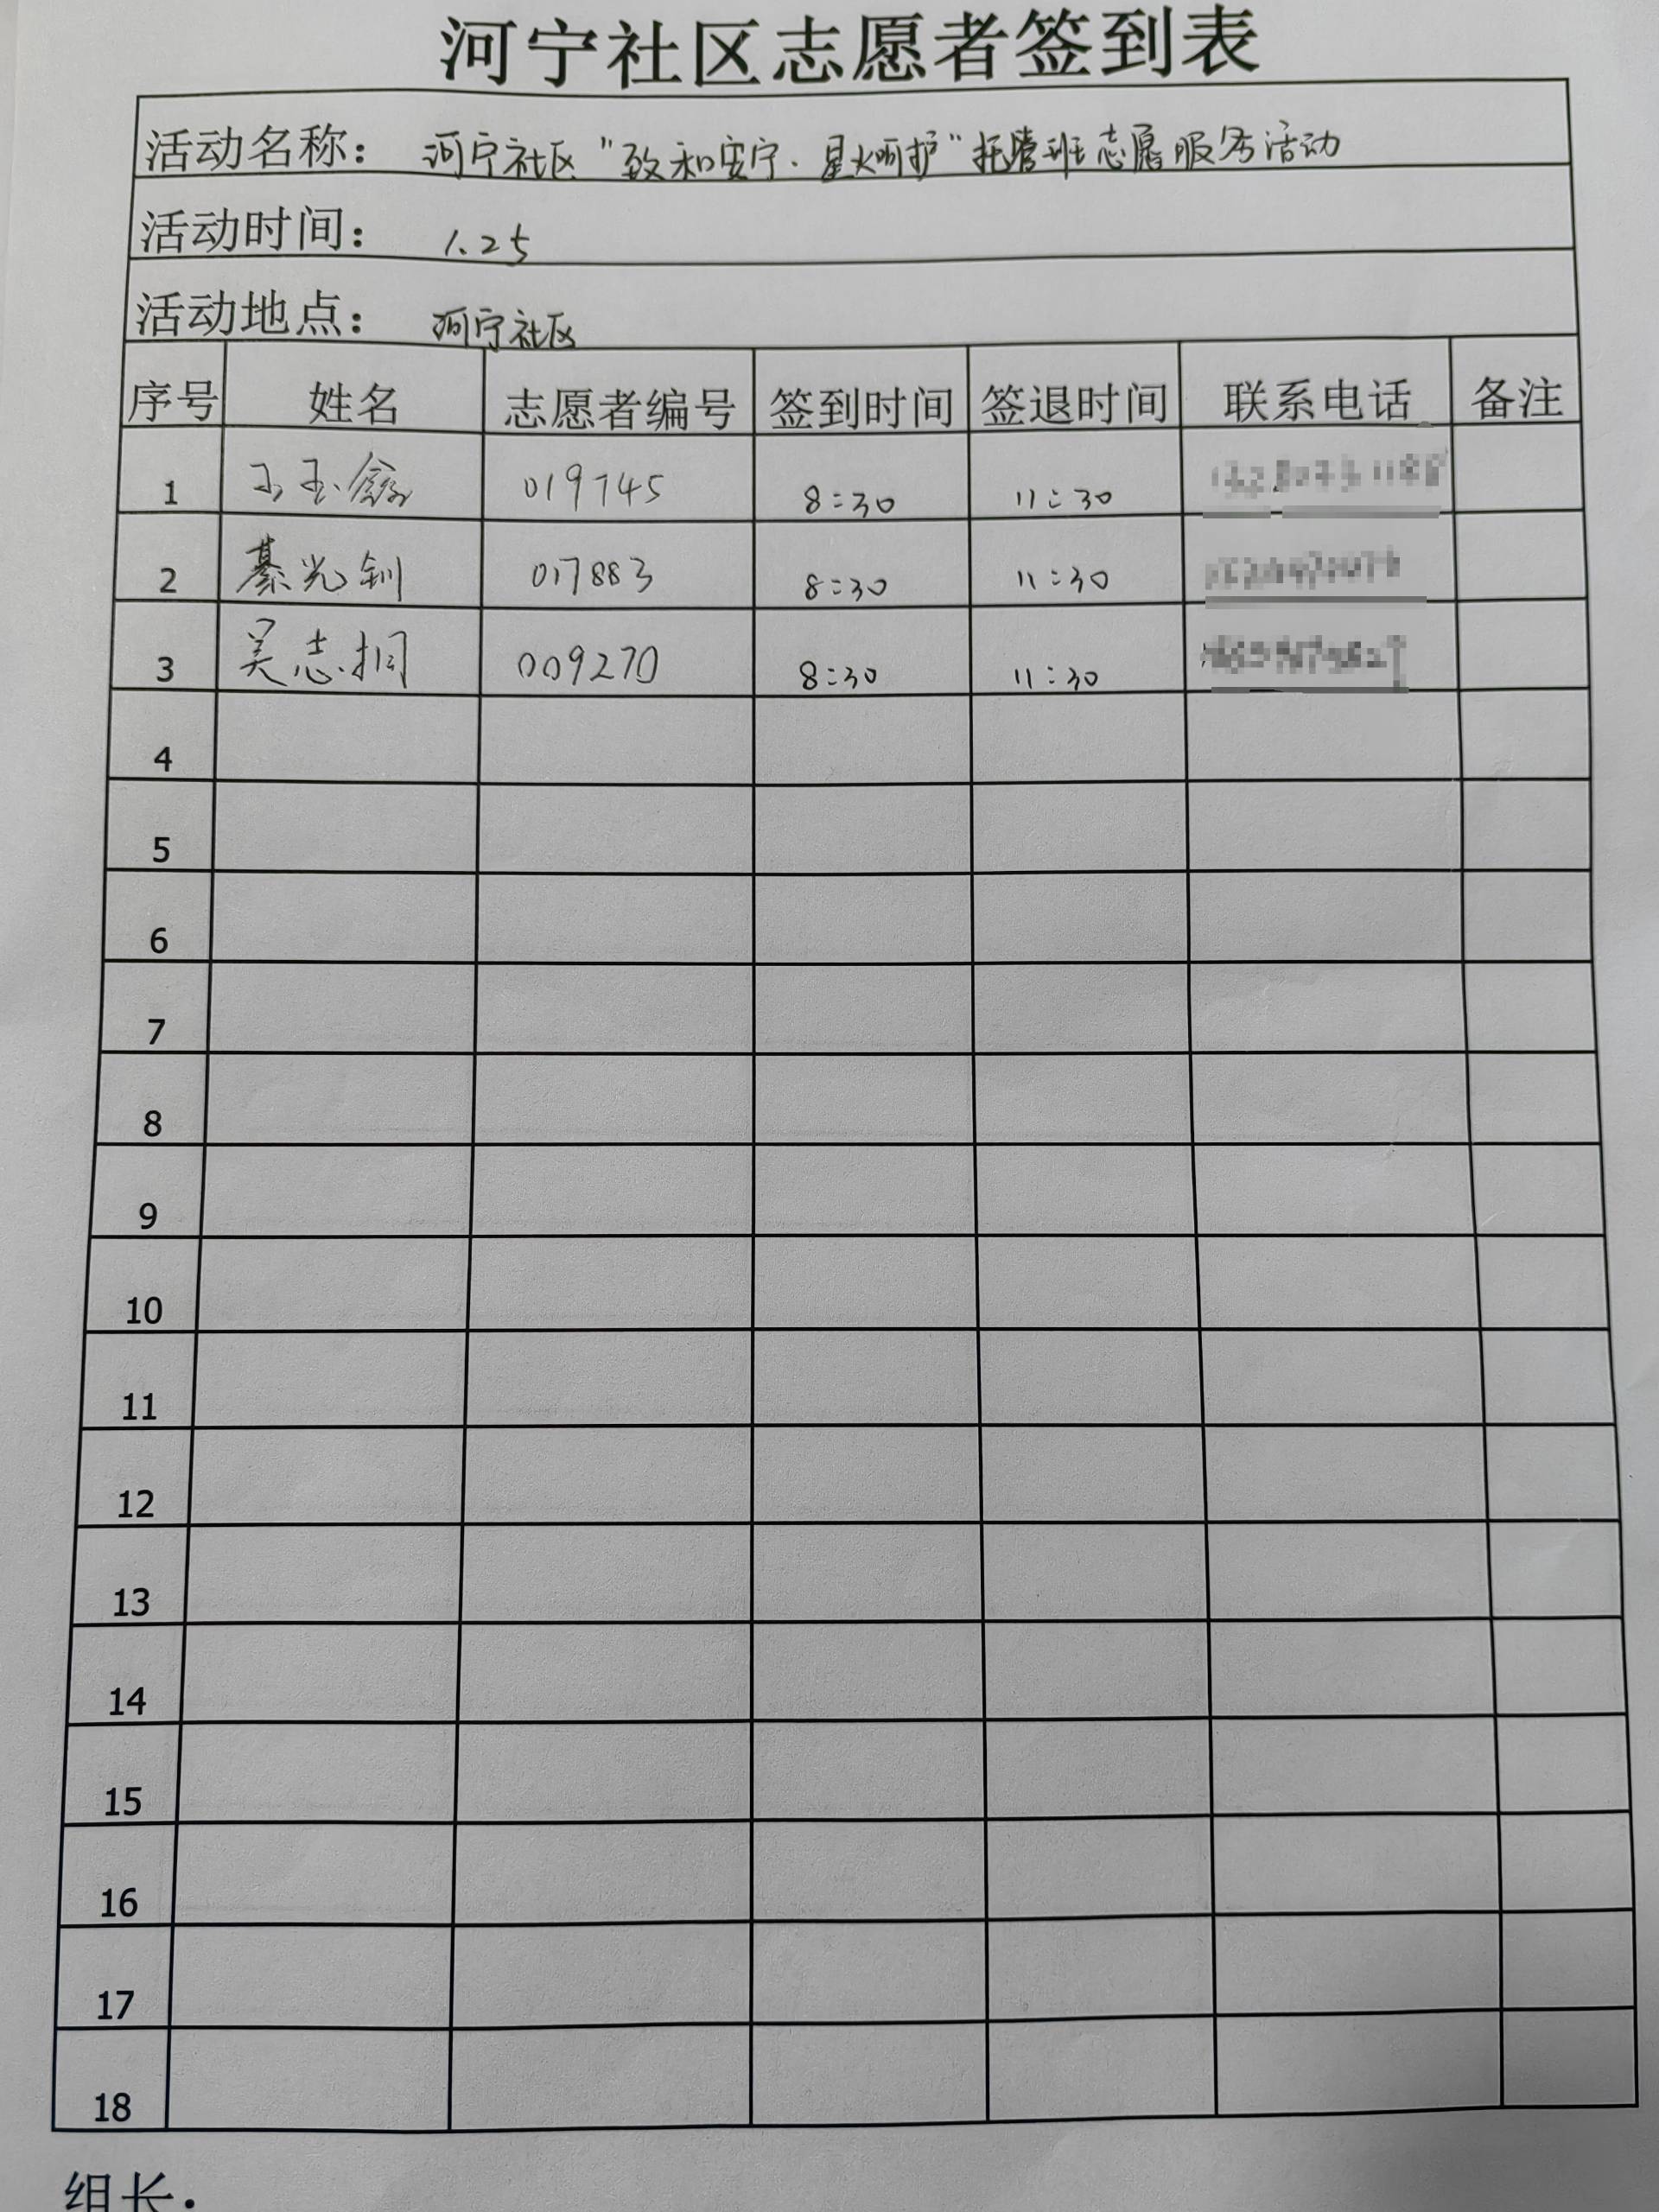 河宁社区志愿者签到表
活动名称： 河宁社区"致和安宁·星火呵护"托管班志愿服务活动
活动时间： 1.25
活动地点： 河宁社区
序号 姓名 志愿者编号 签到时间 签退时间 联系电话 备注
1 王玉鑫 019745 8:30 11:30
2 綦光钏 017883 8:30 11:30
3 吴志桐 009270 8:30 11:30
4
5
6
7
8
9
10
11
12
13
14
15
16
17
18
组长：